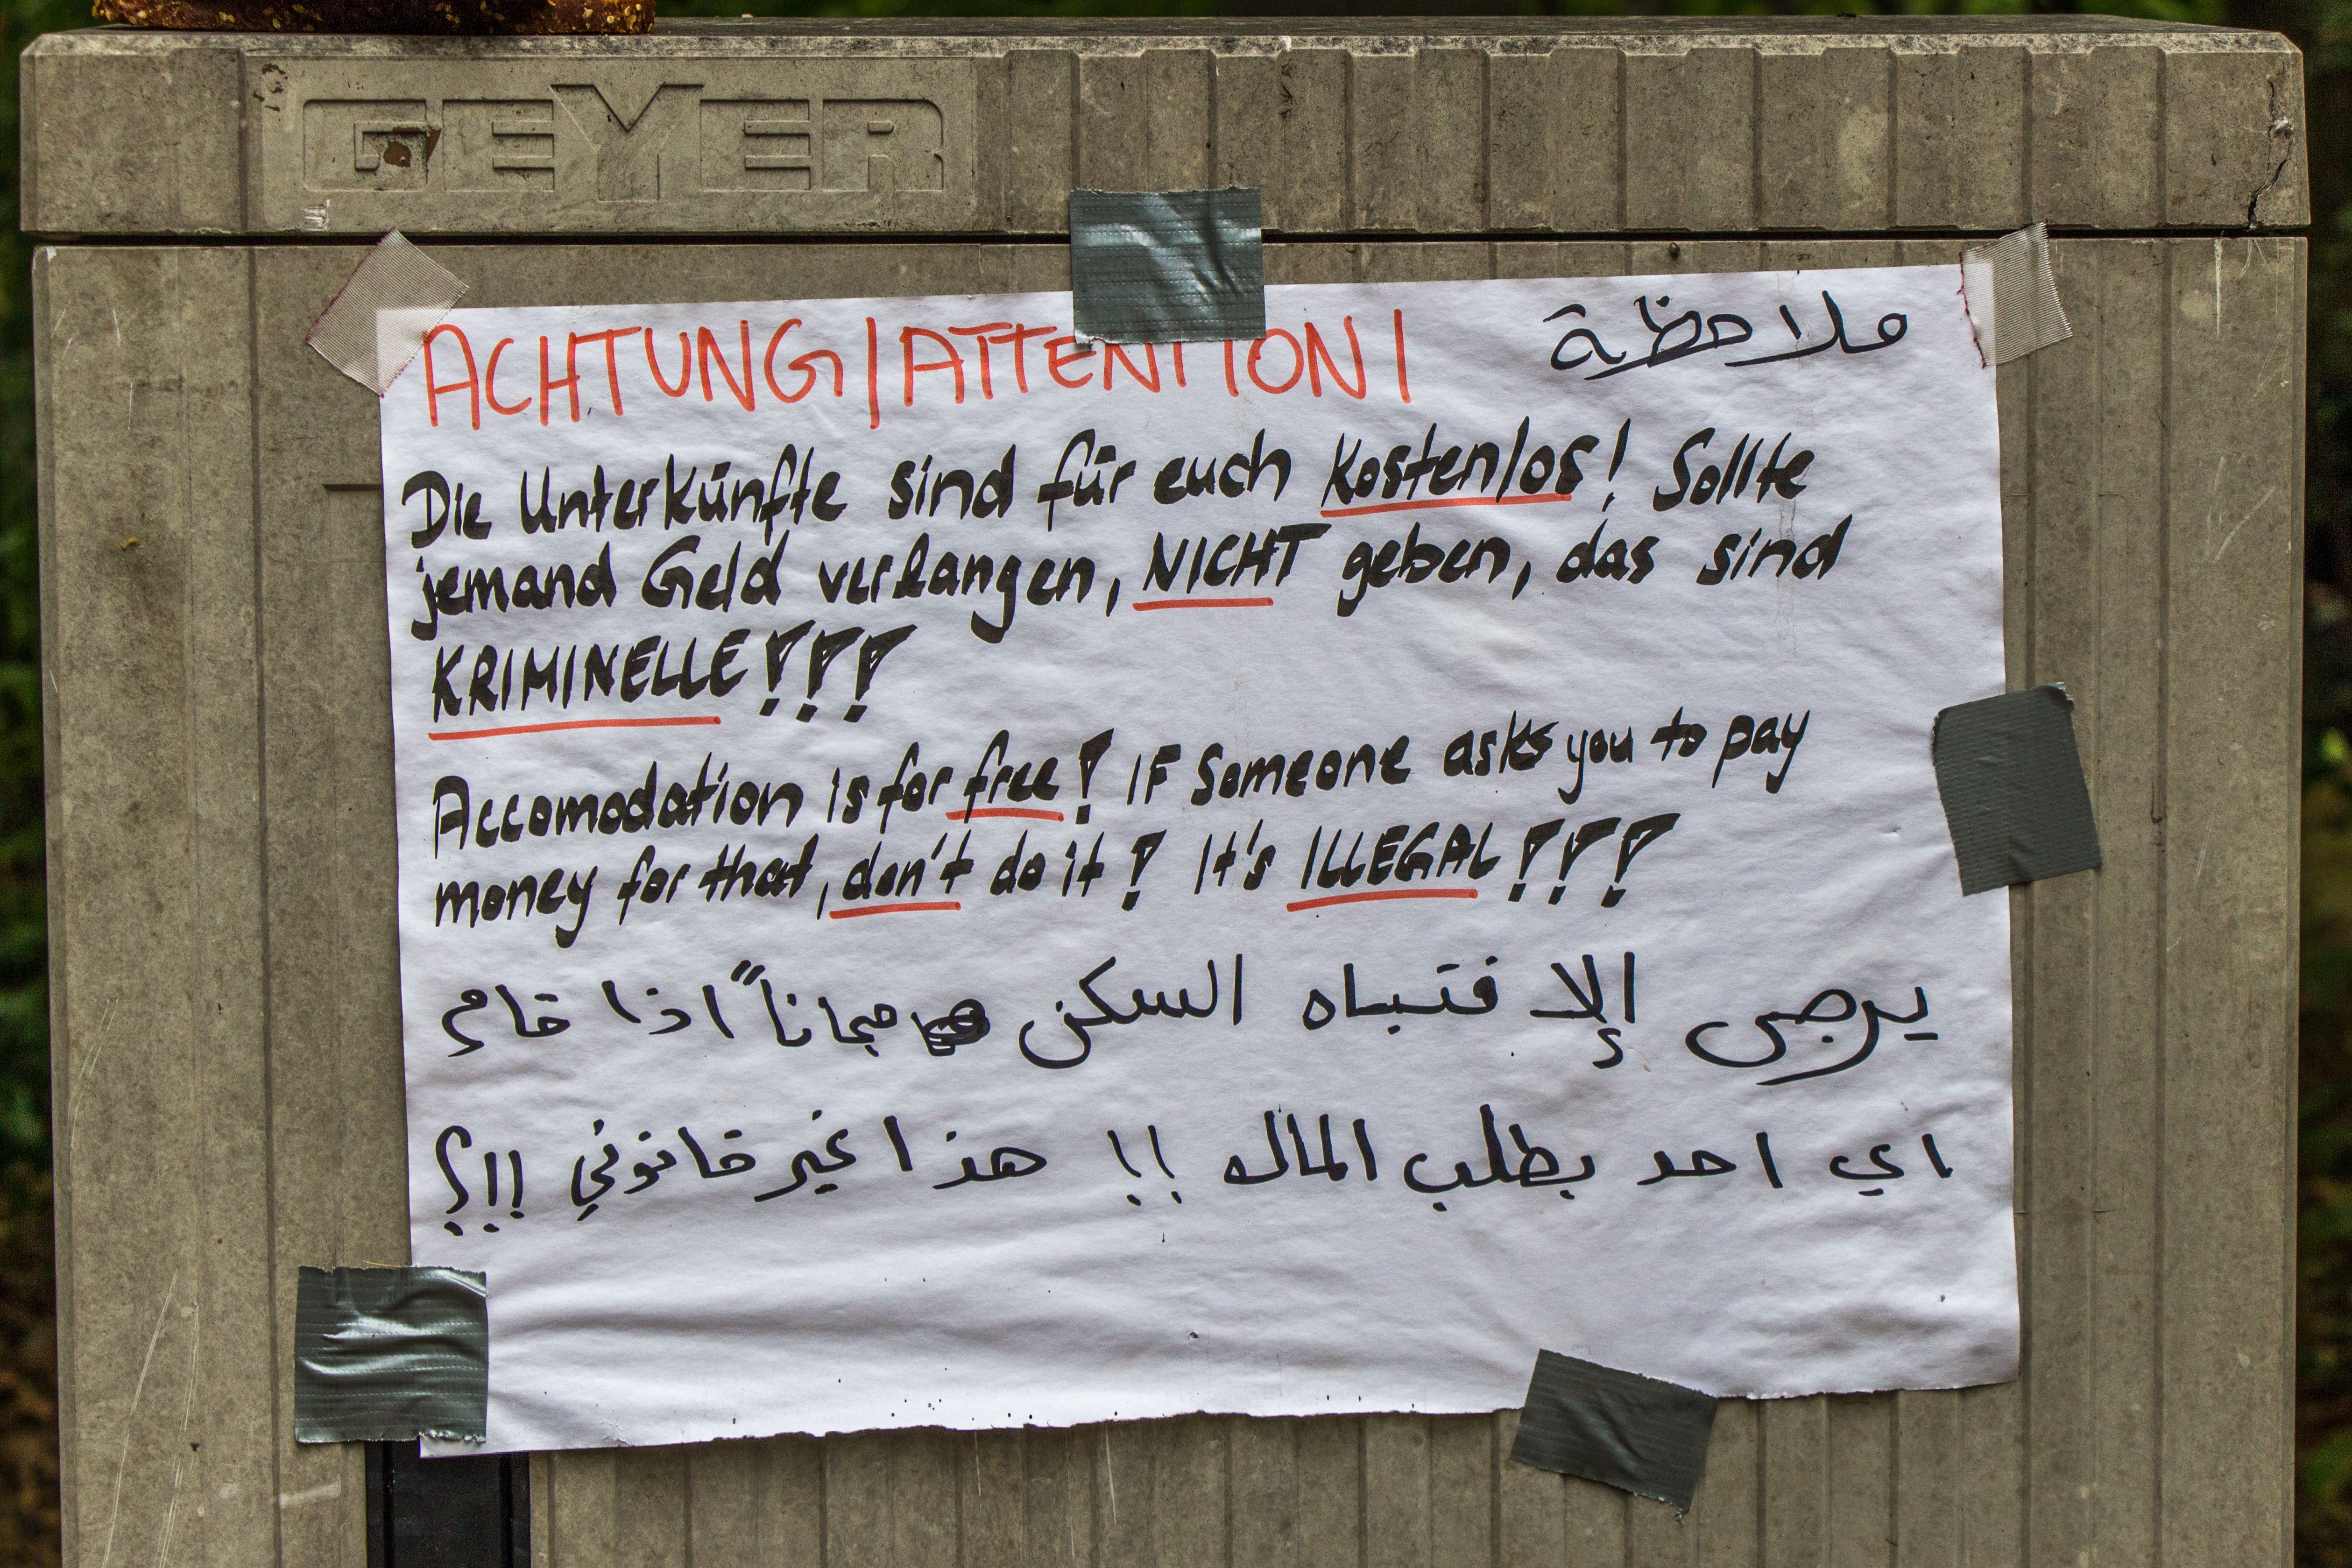 GEYER
ACHTUNG/ATTENTION/ ملاحظة
Die Unterkünfte sind für euch Kostenlos! Sollte
jemand Geld verlangen, NICHT geben, das sind
KRIMINELLE!!!
Accomodation is for free! IF Someone asks you to pay
money for that, don't do it! It's ILLEGAL!!!
يرجى إلا فتباه السكن مجاناً اذا قام
اي احد بطلب المال !! هذا غير قانوني !!؟